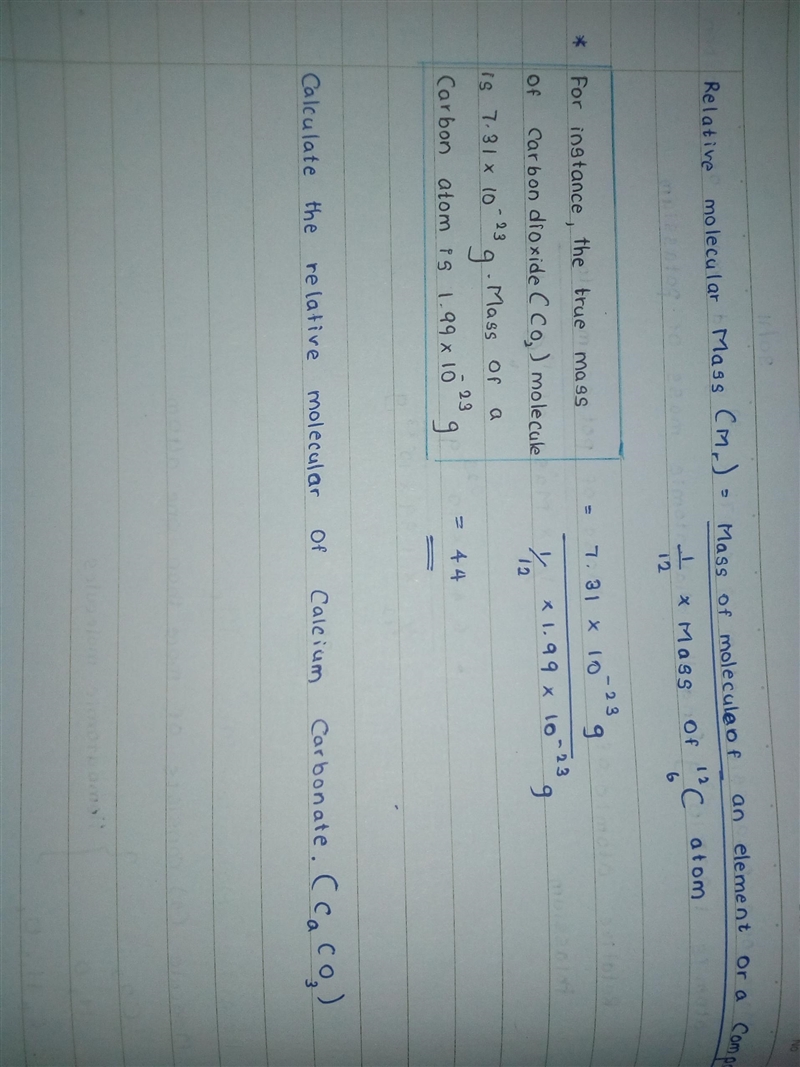 Relative molecular Mass (Mr) = Mass of molecule of an element or a
1/12 x Mass of ¹²₆C atom
* For instance, the true mass
of carbon dioxide (CO₂) molecule
is 7.31 x 10⁻²³ g. Mass of a
Carbon atom is 1.99 x 10⁻²³ g
= 7.31 x 10⁻²³ g
1/12 x 1.99 x 10⁻²³ g
= 44
Calculate the relative molecular of Calcium Carbonate. (CaCO₃)